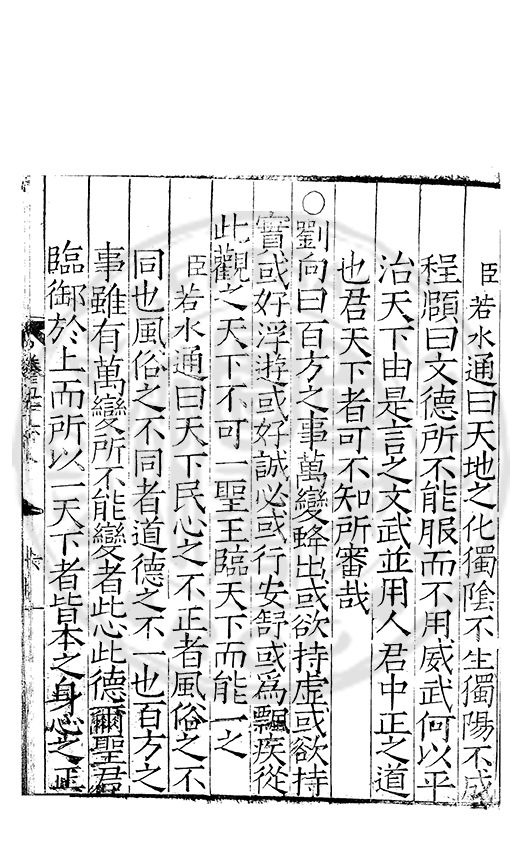 臣若水通曰天地之化獨陰不生獨陽不成
程頤曰文德所不能服而不用威武何以平
治天下由是言之文武並用人君中正之道
也君天下者可不知所審哉
○劉向曰百方之事萬變蜂出或欲持虛或欲持
實或好浮遊或好誠必或行安舒或爲飄疾從
此觀之天下不可一聖王臨天下而能一之
臣若水通曰天下民心之不正者風俗之不
同也風俗之不同者道德之不一也百方之
事雖有萬變所不能變者此心此德爾聖君
臨御於上而所以一天下者皆本之身心之正